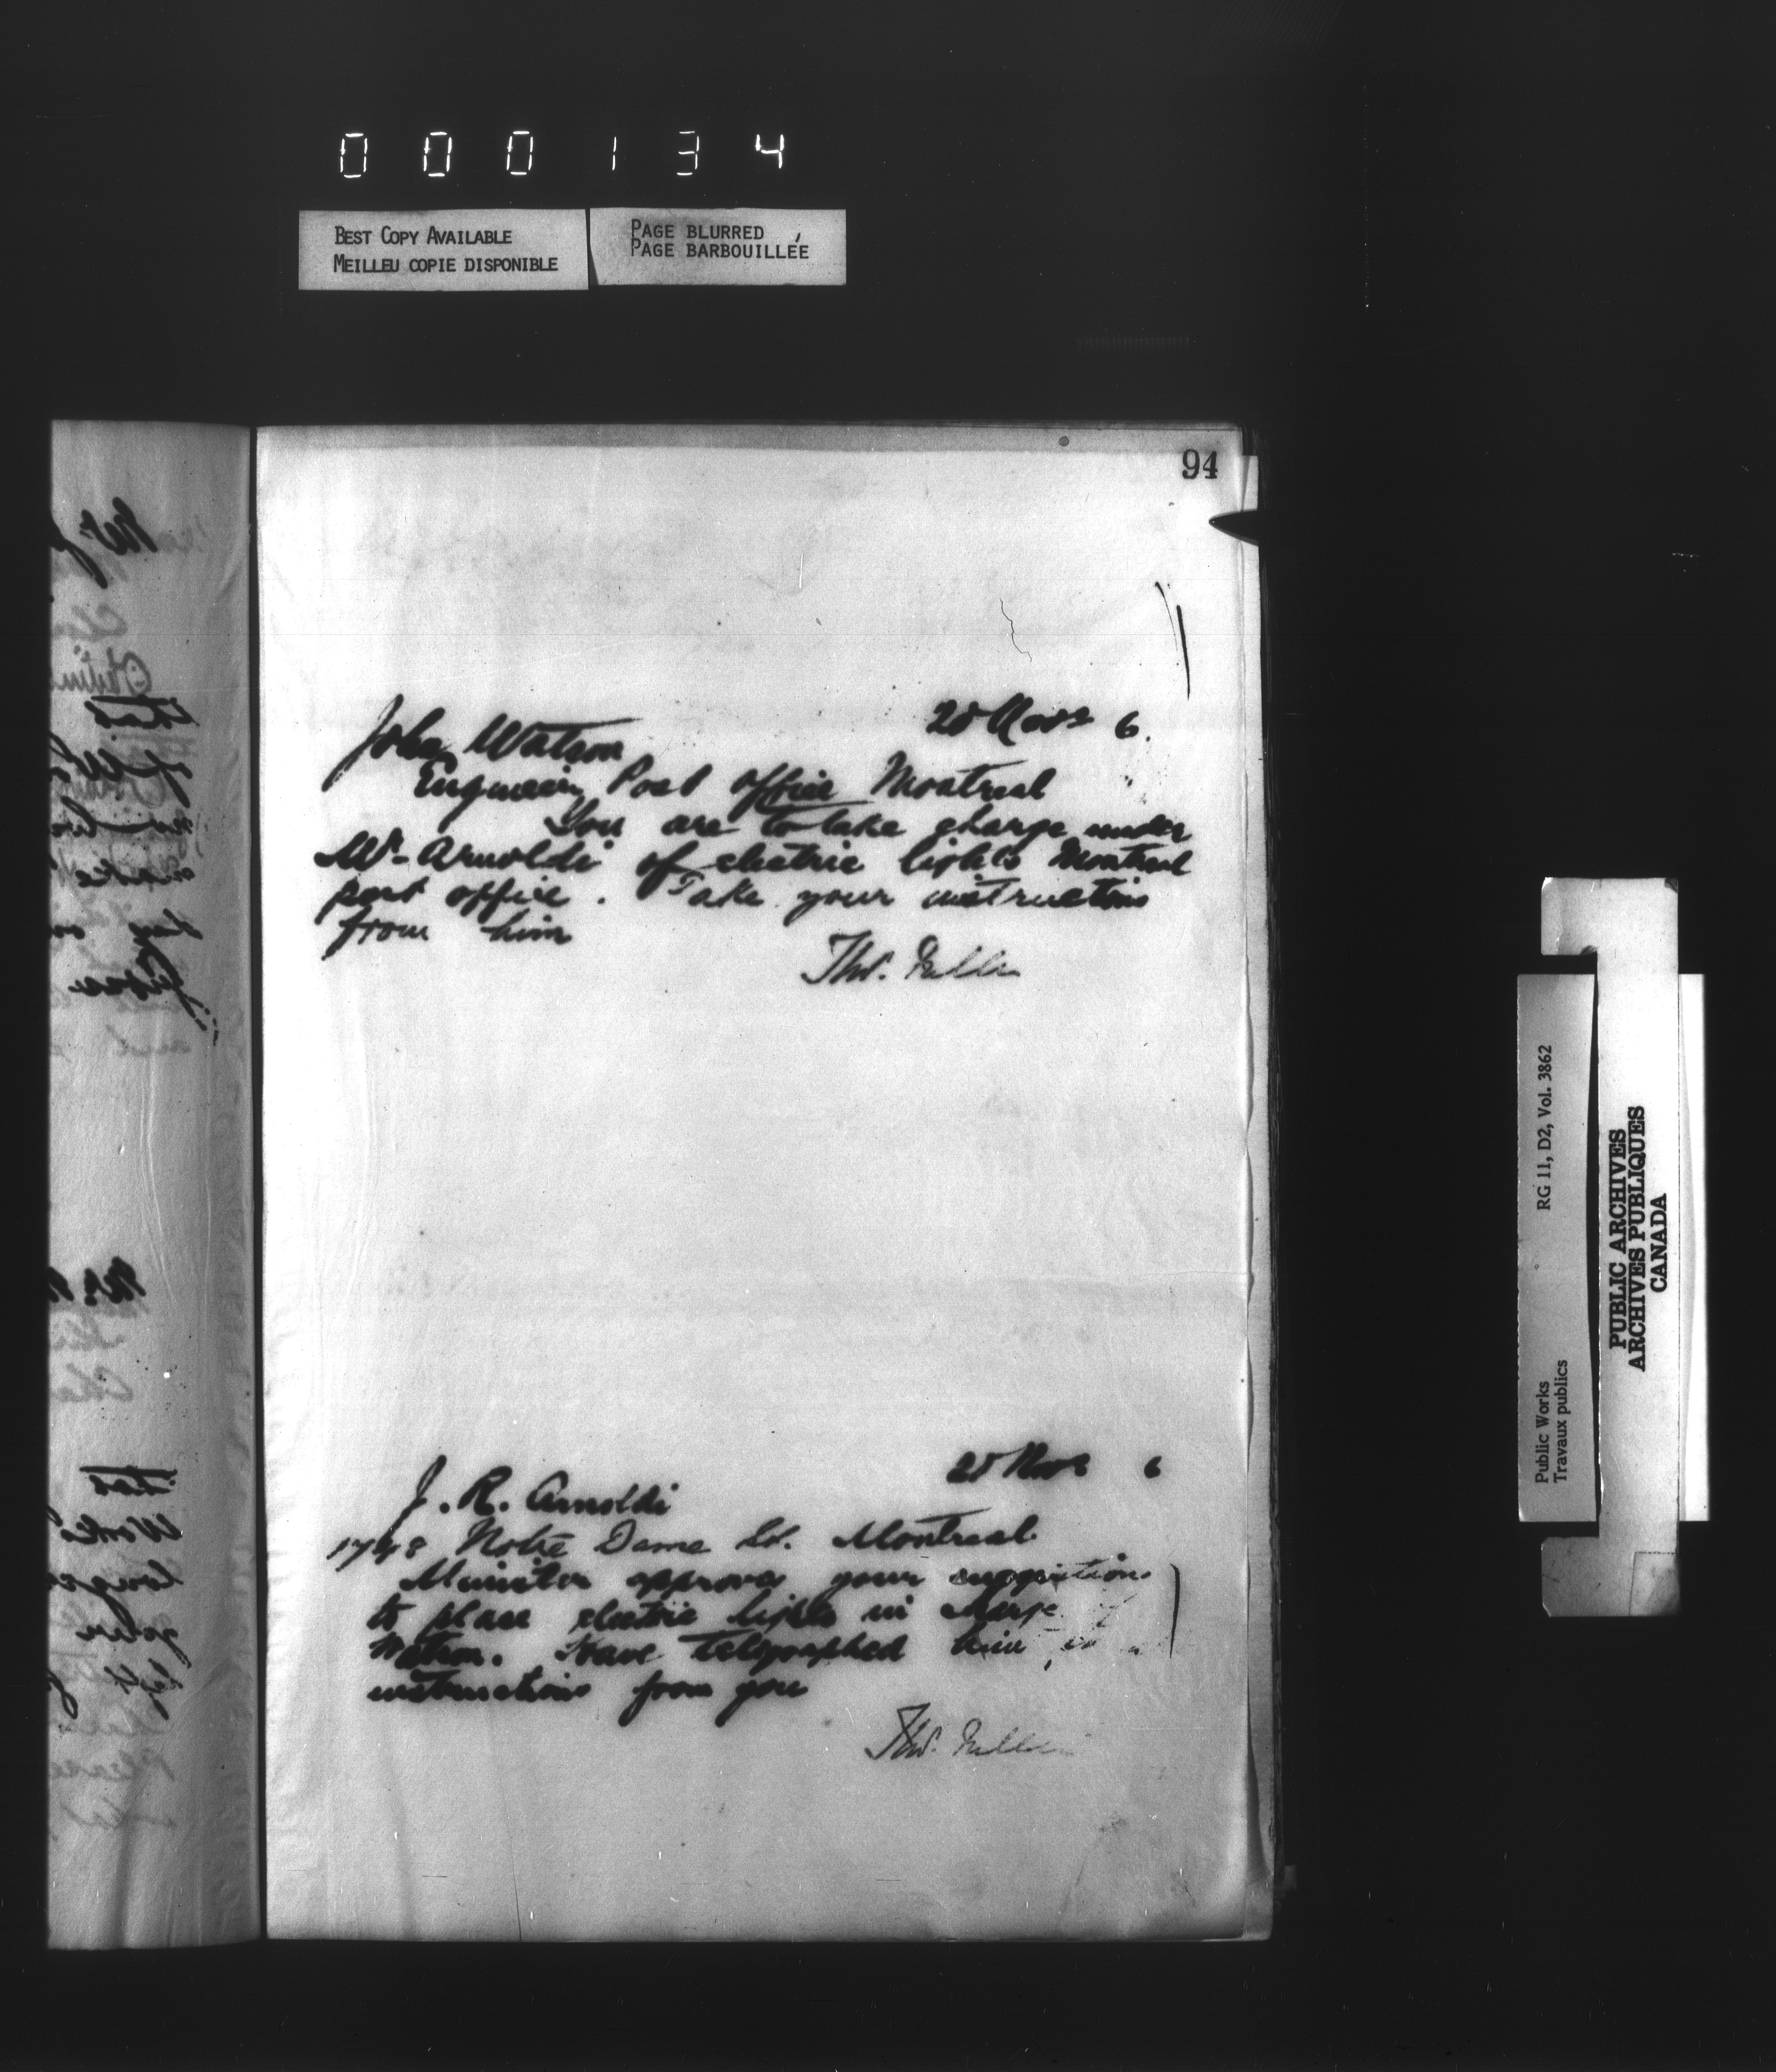 000134
BEST COPY AVAILABLE
MEILLEU COPIE DISPONIBLE
PAGE BLURRED
PAGE BARBOUILLÉE
94
20 Nov 6.
John Watson
Engineer, Post office Montreal
You are to take charge under
Mr. Arnoldi of electric lights Montreal
post office. Take your instructions
from him
Tho.
20 Nov 6
J. R. Arnoldi
1748 Notre Dame St. Montreal
Minister approves your suggestion
to place electric lights in charge of
Watson. Have telegraphed him
instructions from you
Tho.
Public Works
Travaux publics
RG 11, D2, Vol. 3862
PUBLIC ARCHIVES
ARCHIVES PUBLIQUES
CANADA